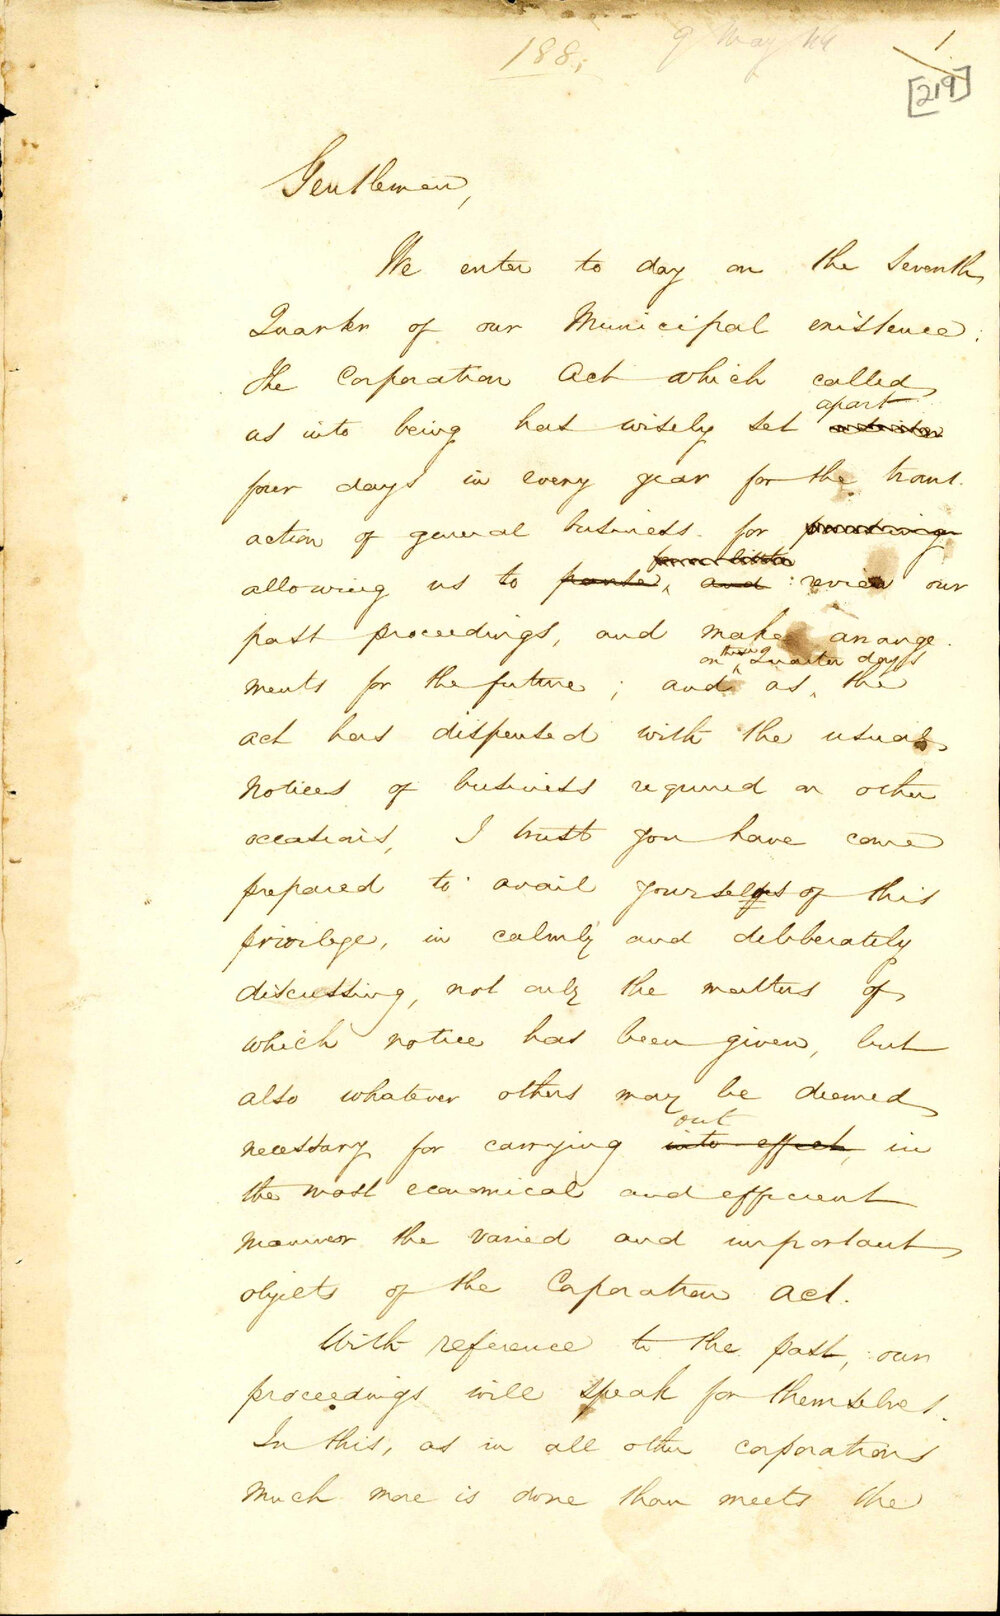 188. 9 May 44 1
[219]
Gentlemen,
We enter to day on the Seventh
Quarter of our Municipal existence:
The Corporation Act which called
apart
us into being has wisely set
four days in every year for the trans.
action of general business. for
allowing us to pause, and review our
past proceedings, and make arrange.
on these Quarter days
ments for the future; and as, the
act has dispensed with the usual
notices of business required on other
occasions, I trust you have come
prepared to avail yourselves of this
privilege, in calmly and deliberately
discussing, not only the matters of
which notice has been given, but
also whatever others may be deemed
out
necessary for carrying into effect, in
the most economical and efficient
manner the varied and important
objects of the Corporation Act.
With reference to the past, our
proceedings will speak for themselves.
In this, as in all other corporations
much more is done than meets the